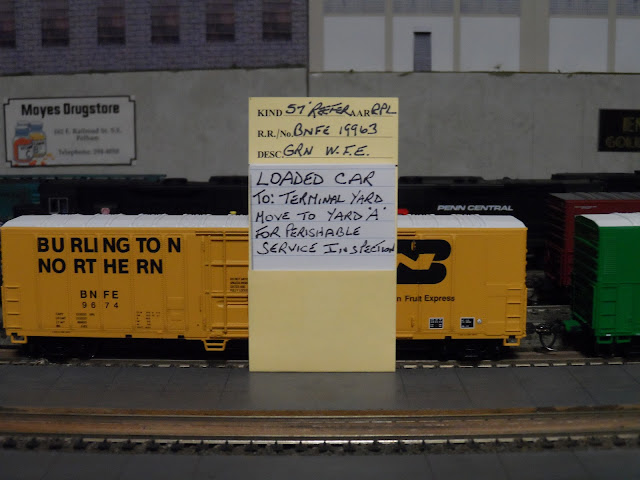 Moyes Drugstore
Pelham
KIND 57' REEFER AAR RPL
R.R./No. BNFE 19963
DESC GRN W.F.E.
LOADED CAR
TO: TERMINAL YARD
MOVE TO YARD "A"
FOR PERISHABLE
SERVICE INSPECTION
PENN CENTRAL
BURLINGTON
NORTHERN
BNFE
9674
n Fruit Express